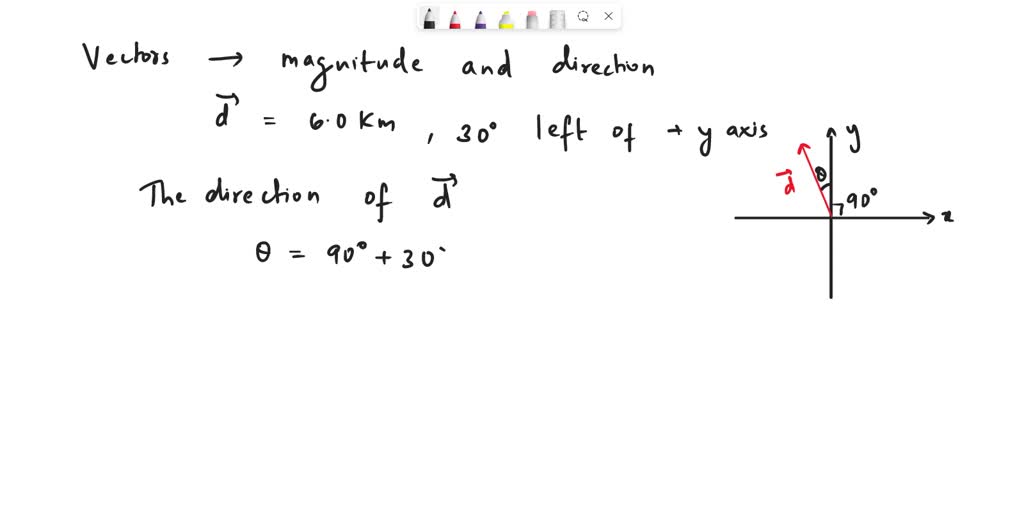 Vectors → magnitude and direction
d⃗ = 6.0 Km , 30° left of + y axis
y
θ
d⃗
90°
x
The direction of d⃗
θ = 90° + 30°